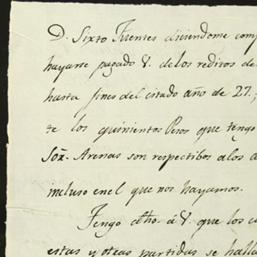 D. Sixto Fuentes diciendome com
hayarse pagado V. delos reditos de
hasta fines del citado año de 27;
te los quinientos Pesos que tengo
Sõr. Arenas son respectibos alos a
incluso enel que nos hayamos.
Tengo dho. á V. que los c
estas y otras partidas se halla